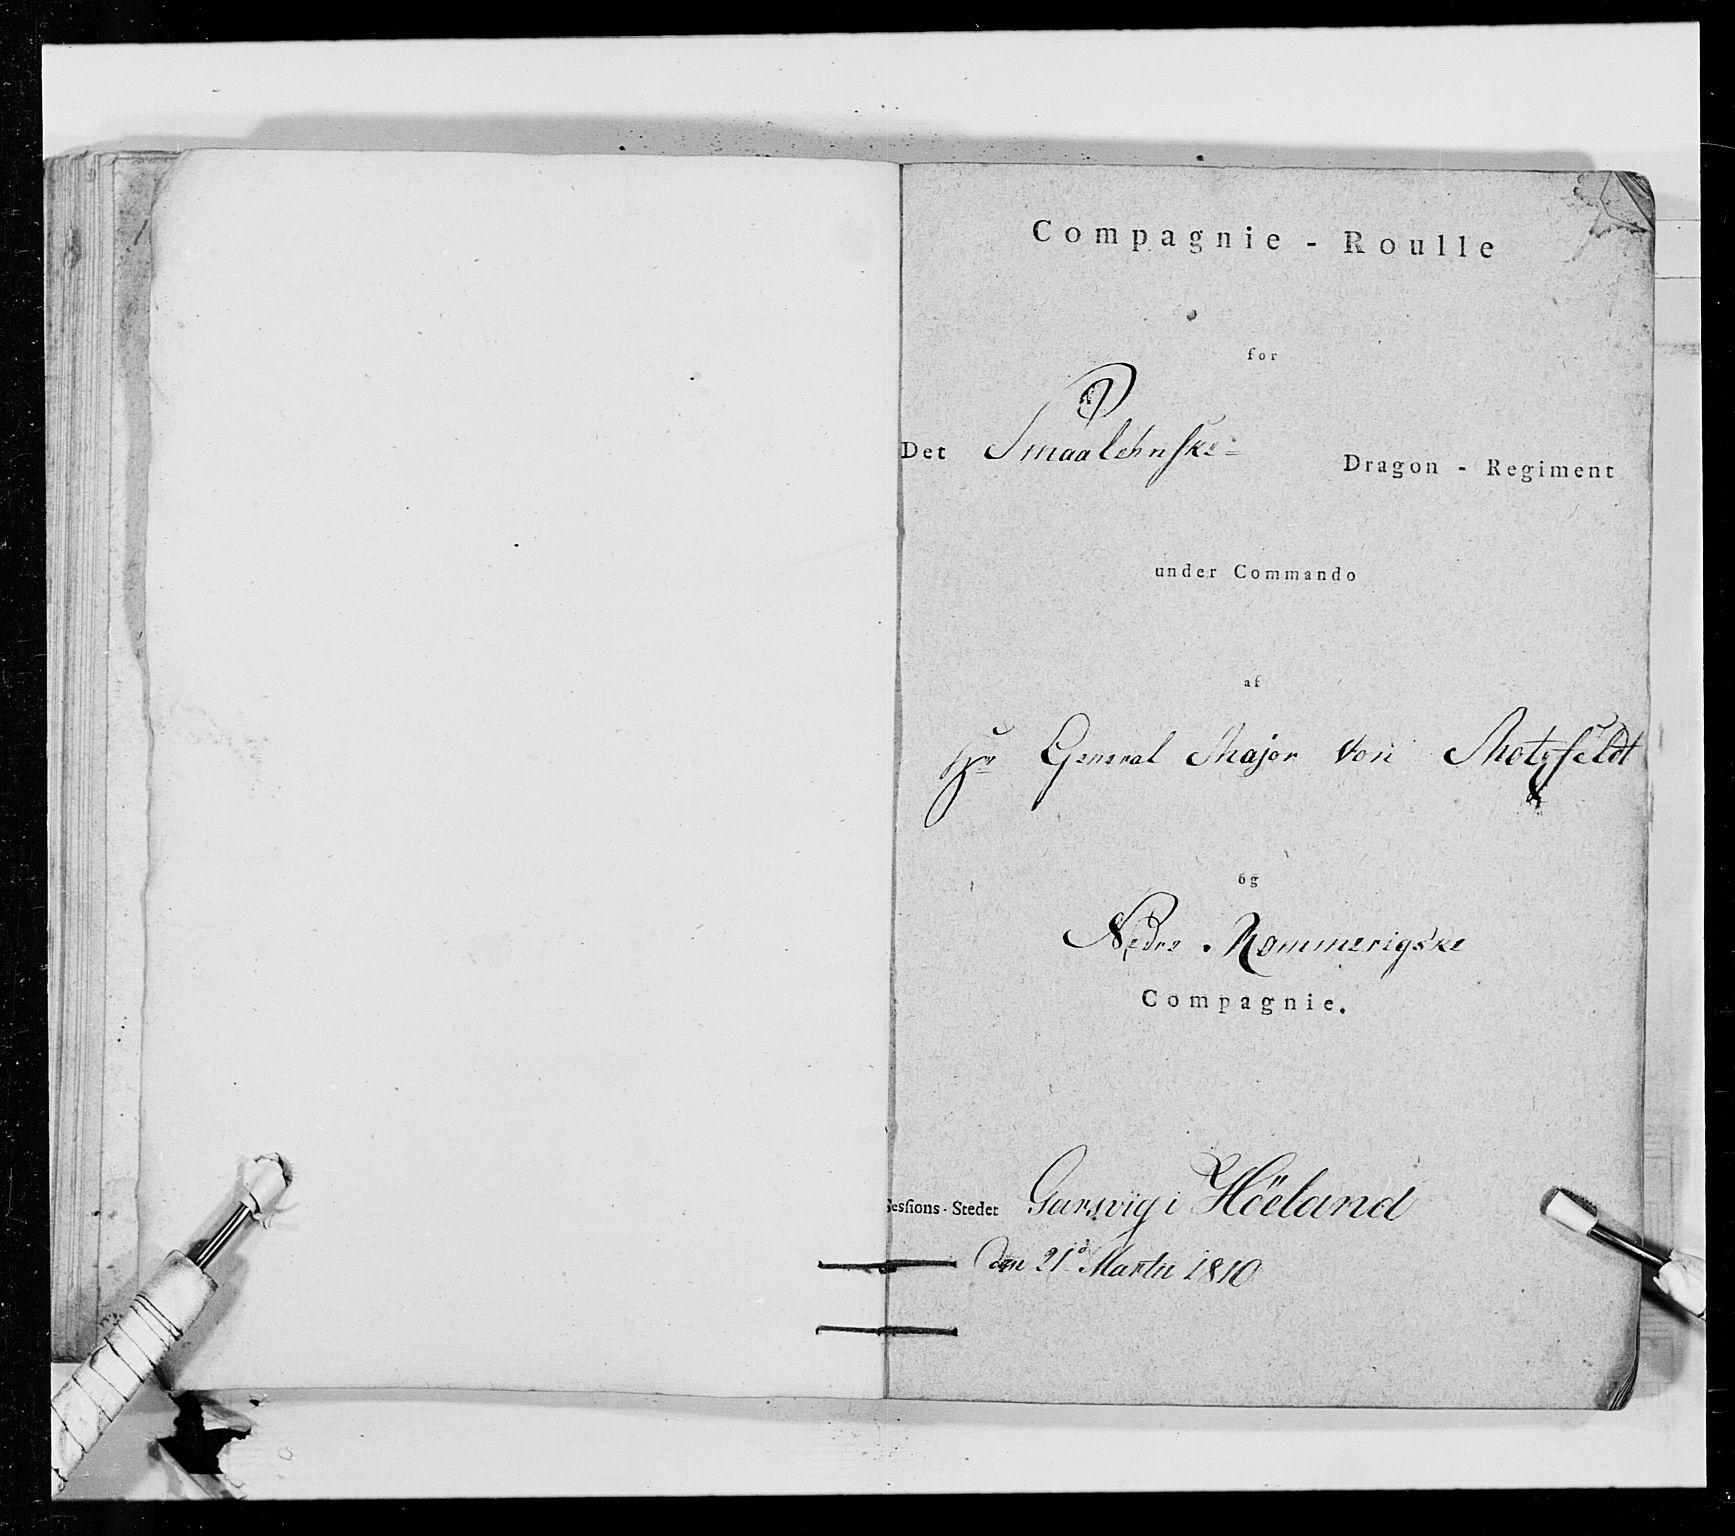 Compagnie - Roulle
for
Det Smaalehnske Dragon - Regiment
under Commando
af
Hr General Major Von Motzfeldt
og
Nedre Rommerigske
Compagnie.
Sessions-Stedet Garsvig i Höeland
Den 21d Martii 1810